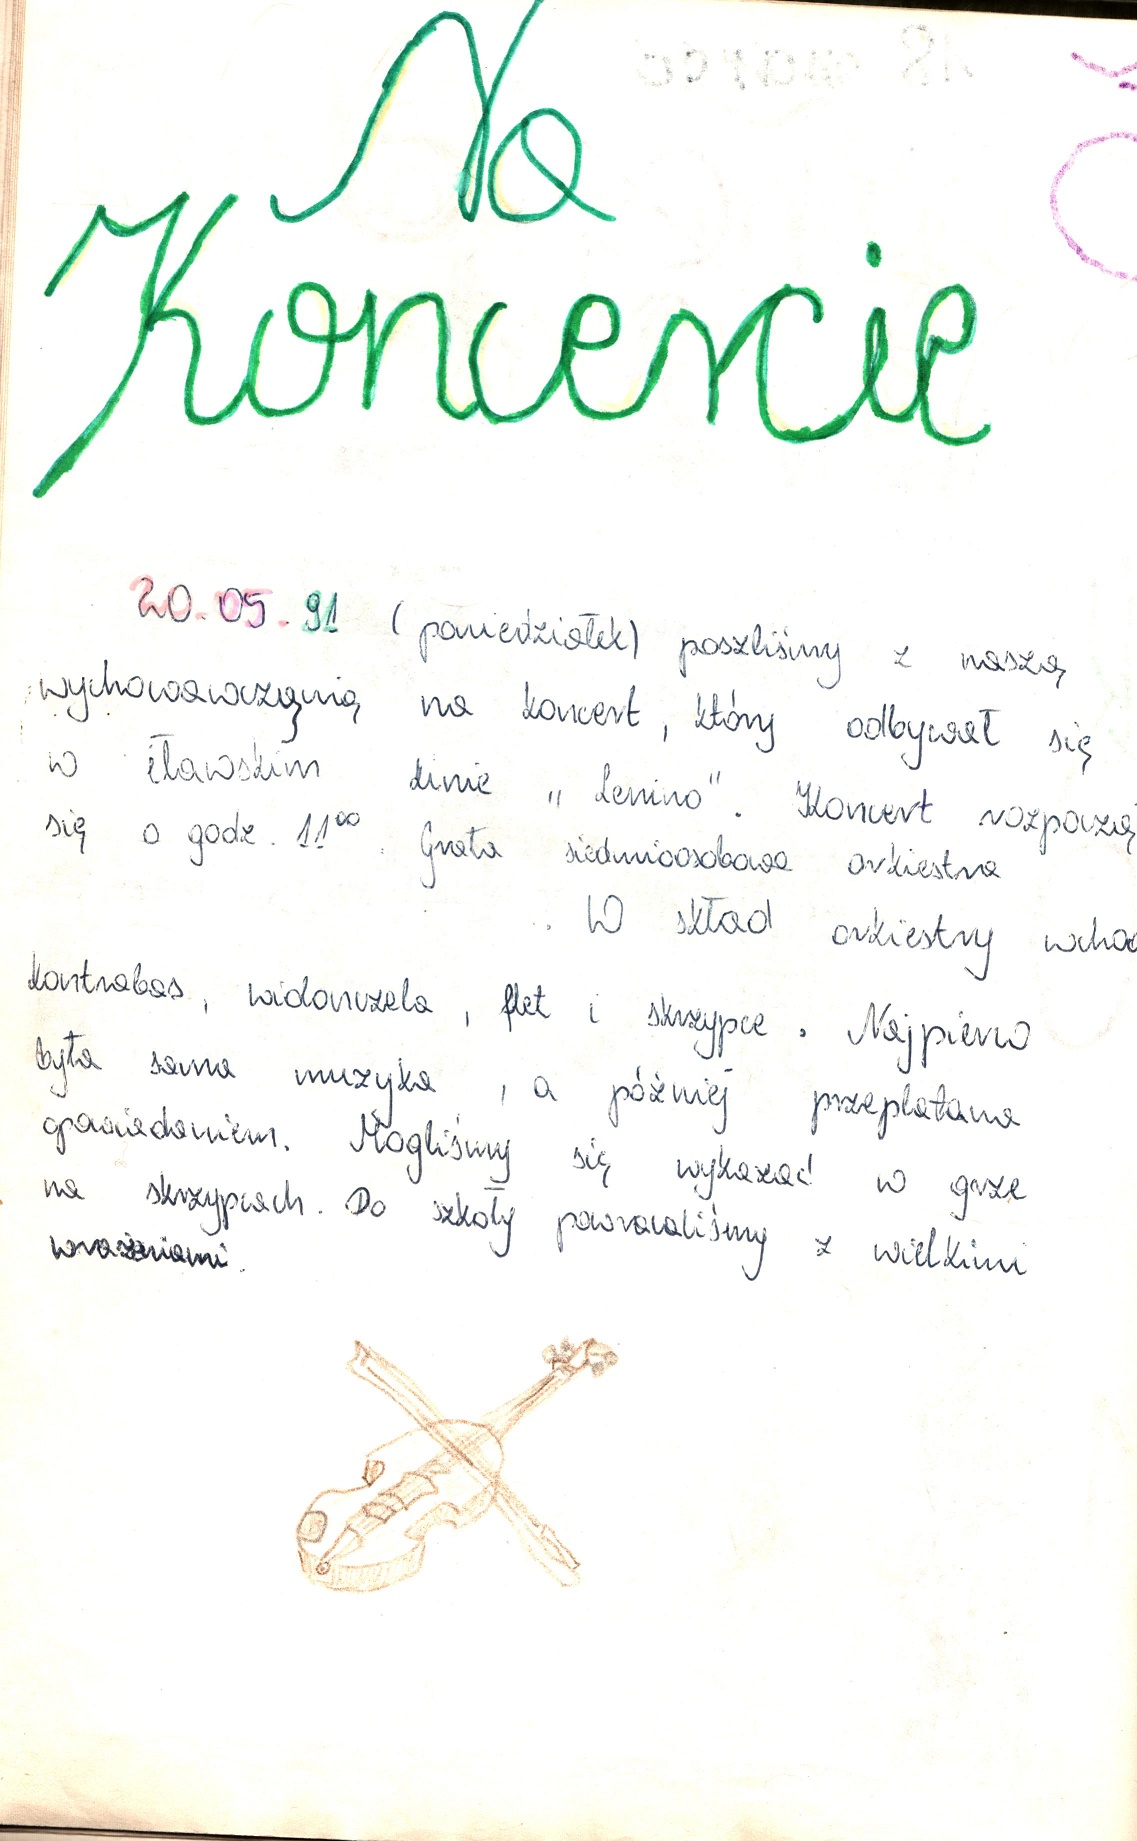 Na
Koncercie
20.05.91 (poniedziałek) poszliśmy z naszą
wychowawczynią na koncert, który odbywał się
w iławskim kinie „Lenino". Koncert rozpoczą
się o godz. 11⁰⁰. Grała siedmioosobowa orkiestra
. W skład orkiestry wchod
kontrabas, widonczela, flet i skrzypce. Najpierw
była sama muzyka, a później przeplatana
opowiadaniem. Mogliśmy się wykazać w grze
na skrzypcach. Do szkoły powracaliśmy z wielkimi
wrażeniami.